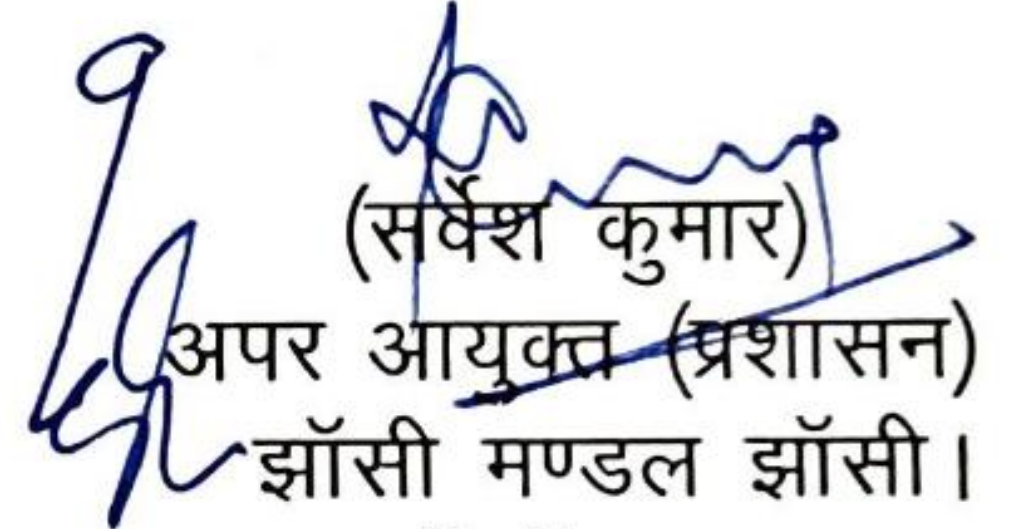 (सर्वेश कुमार)
अपर आयुक्त (प्रशासन)
झॉसी मण्डल झॉसी।